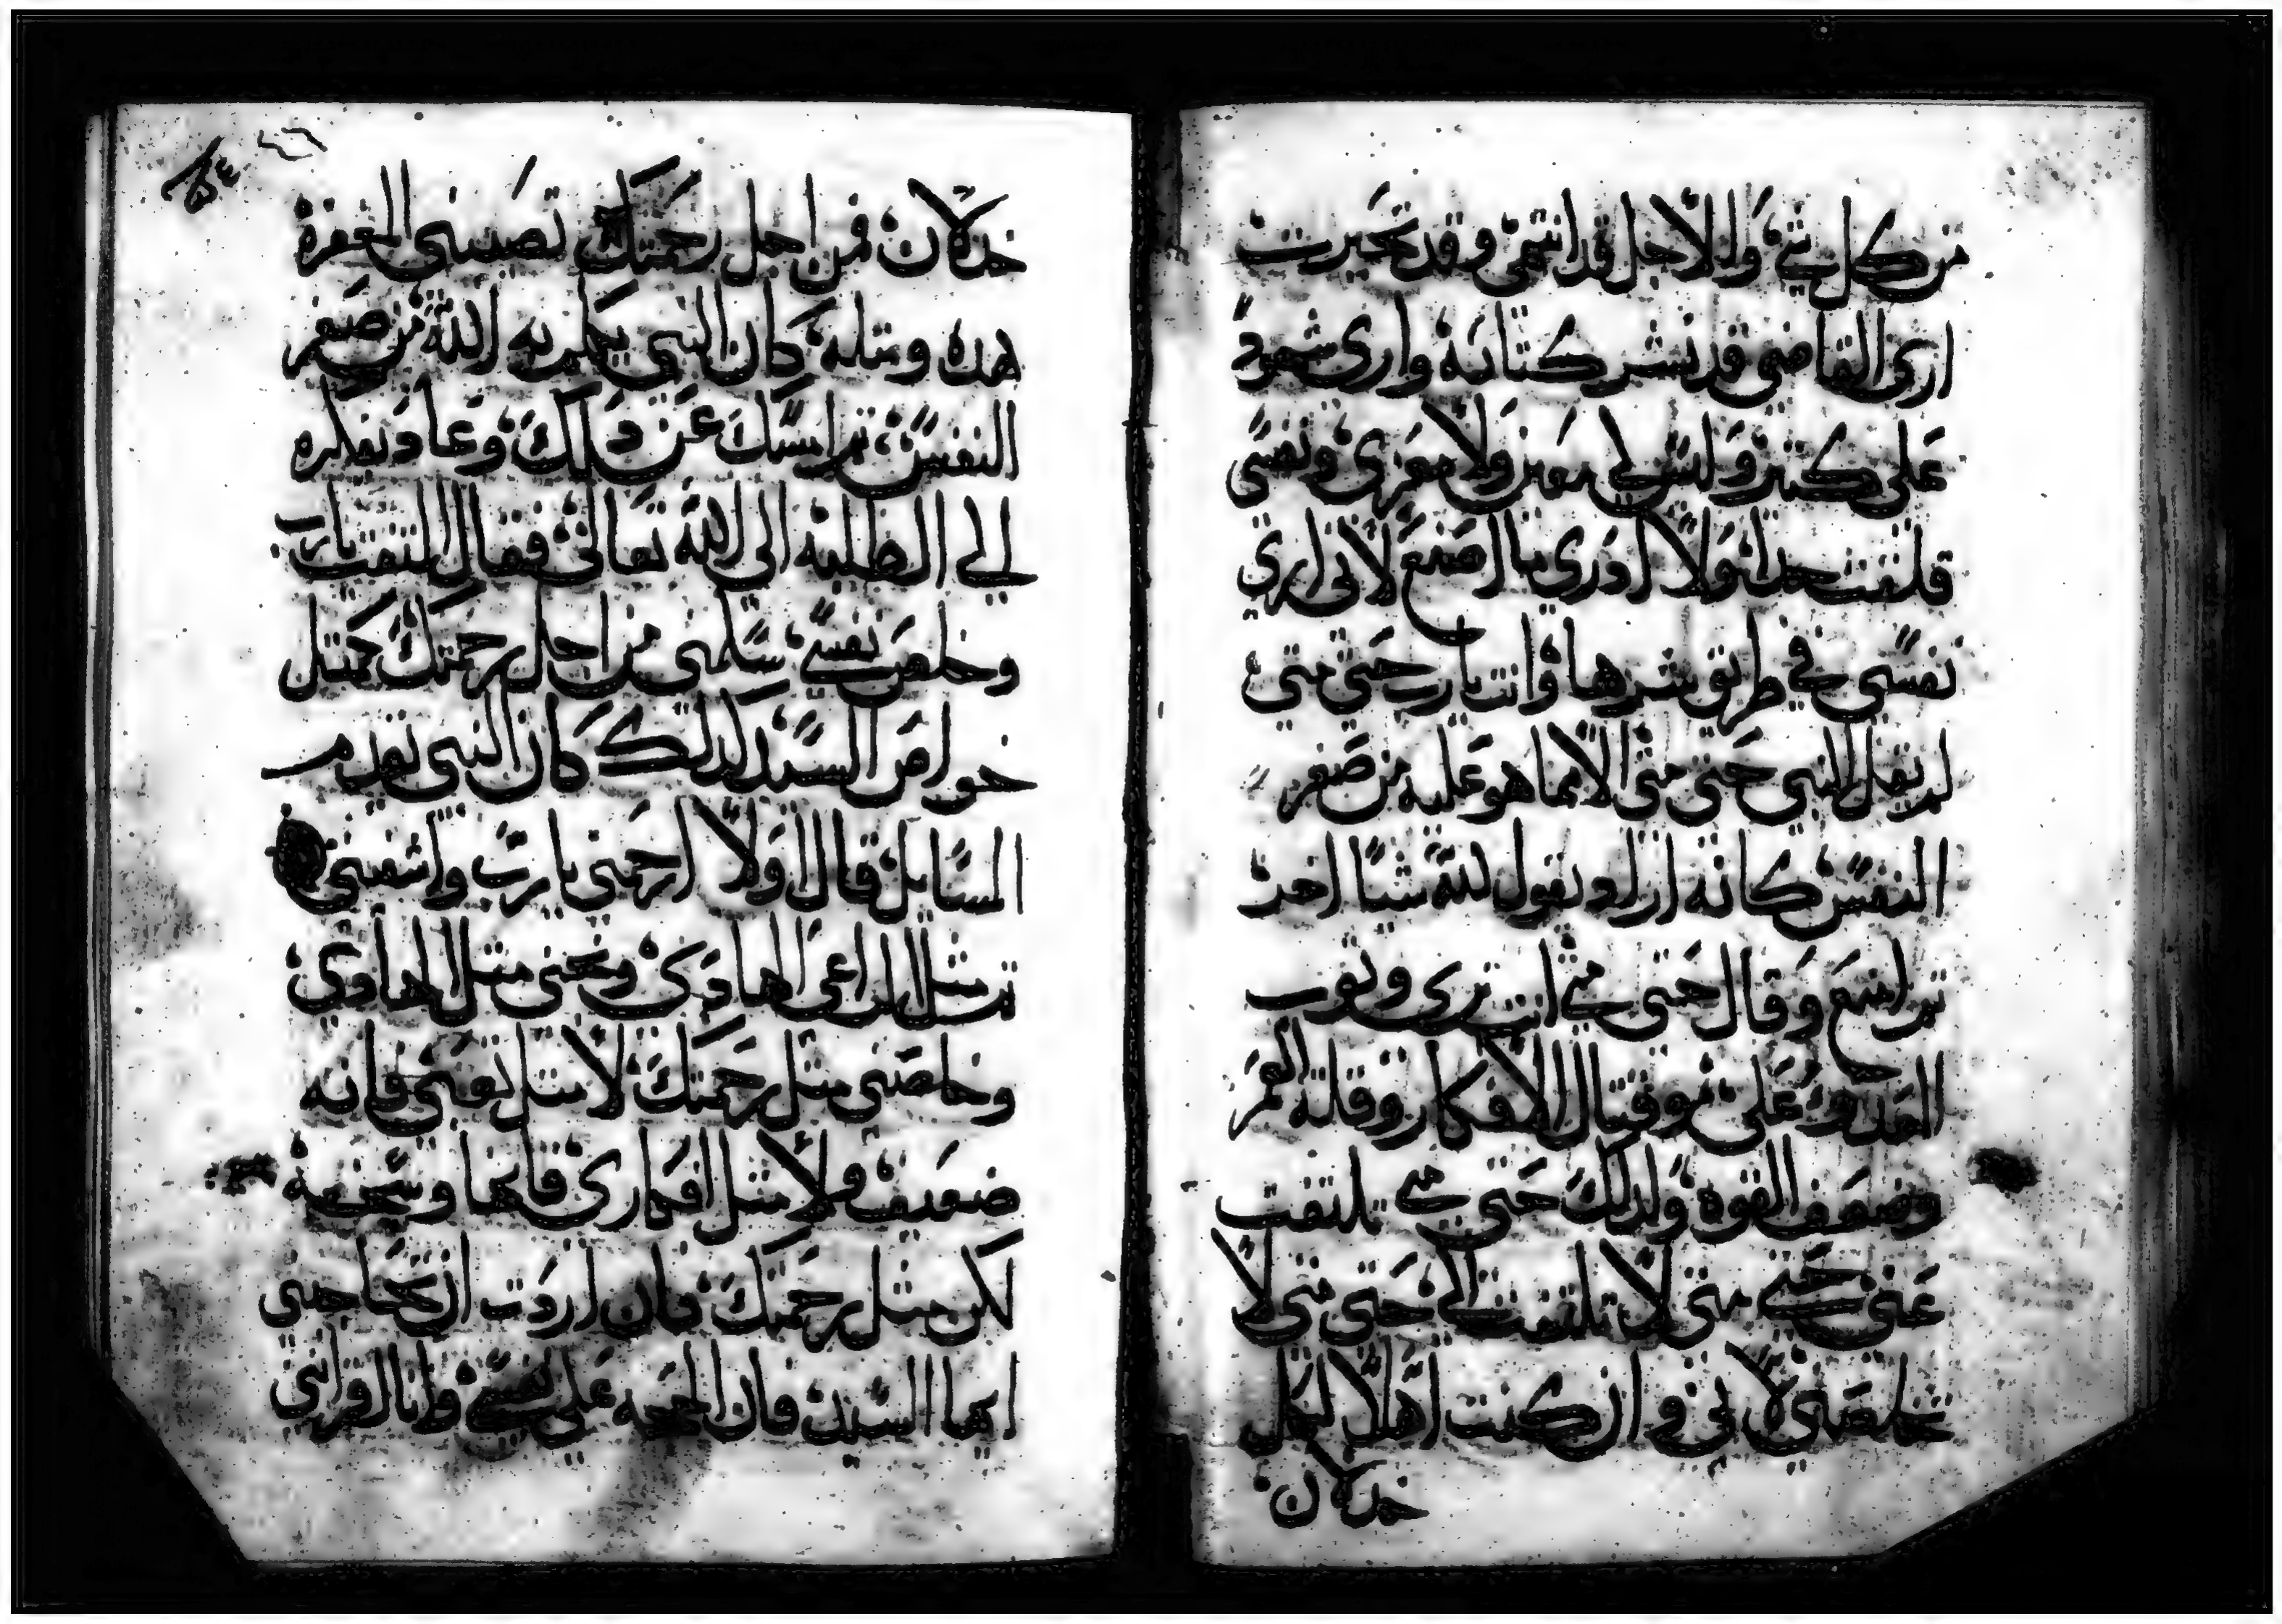 من كل شي والاجل قد انتهى وقد تحيرت
ارى القاضي قد نشر كتابه وارى شهود
على كثير وليس لي معين ولا معزى ونفسي
قلقت جدا ولا ادرى ما اصنع لانى ارى
نفسي في طريق شرها وانت يارب حتى متى
لم يقل النبي حتى متى الا لما هو عليه من صغر
النفس كانه اراد يقول لله شيا اخر
ثم امتنع وقال حتى متى انت ترى وثوب
العدو على وقتال الافكار وقلة العمر
وضعف القوه ولذلك حتى متى تلتفت
عنى حتى متى لا تلتفت الى حتى متى لا
تخلصني لانى وان كنت اهلا لكل
خذلان
خذلان فمن اجل رحمتك تصيبني المغفرة
هذه ومثله كان النبي يكلم به الله من صغر
النفس ثم امسك عن ذلك وعاد بفكره
الى الطلبة الى الله تعالى فقال التفت يارب
وخلص نفسي سلمنى من اجل رحمتك كمثل
خواص السيد لذلك كان النبي يقدم
السايل قال اولا ارحمني يارب واشفيني
مثل الراعى الهادى ونجني مثل الهادي
وخلصني مثل رحمتك لا مثل تعبى فانه
ضعيف ولا مثل افكارى فانها وسخة
لكن مثل رحمتك فان اردت ان تحاججني
ايها السيد فان الحجه على نفسي وانا اقر انى